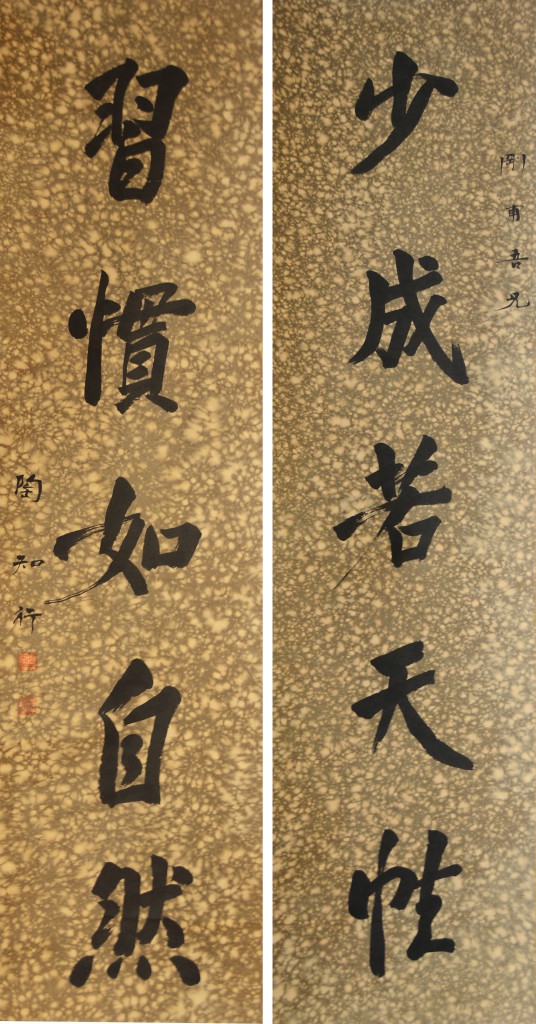 剛甫吾兄
少成若天性
習慣如自然
陶知行